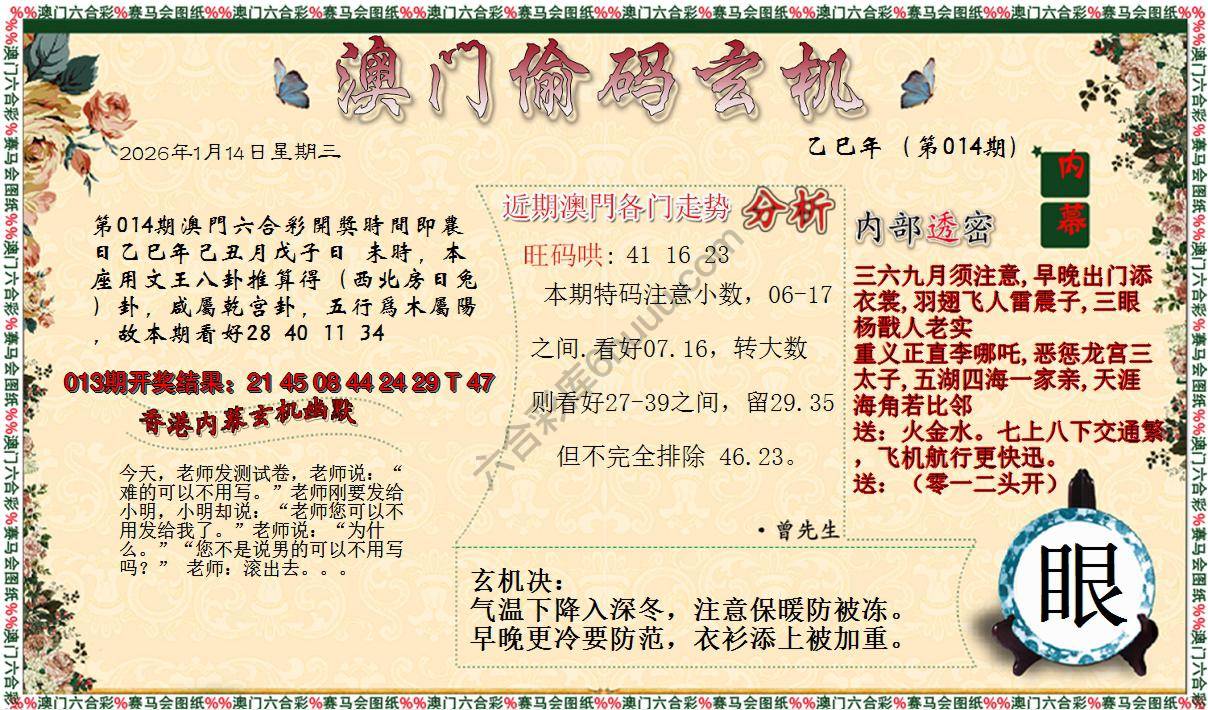 %%澳门六合彩%赛马会图纸%%澳门六合彩%赛马会图纸%%澳门六合彩%赛马会图纸%%澳门六合彩%赛马会图纸%%澳门六合彩%赛马会图纸%%澳门六合彩%赛马会图纸%%
澳门偷码玄机
2026年1月14日星期三
乙巳年（第014期）
内幕
第014期澳門六合彩開獎時間即農
日乙巳年己丑月戊子日 未時，本
座用文王八卦推算得（西北房日兔
）卦，咸屬乾宫卦，五行爲木屬陽
，故本期看好28 40 11 34
013期开奖结果：21 45 08 44 24 29 T 47
香港内幕玄机幽默
今天，老师发测试卷，老师说：“
难的可以不用写。”老师刚要发给
小明，小明却说：“老师您可以不
用发给我了。”老师说：“为什
么。”“您不是说男的可以不用写
吗？” 老师：滚出去。。。
近期澳門各门走势 分析
旺码哄: 41 16 23
本期特码注意小数，06-17
之间.看好07.16，转大数
则看好27-39之间，留29.35
但不完全排除 46.23。
·曾先生
内部透密
三六九月须注意,早晚出门添
衣裳,羽翅飞人雷震子,三眼
杨戬人老实
重义正直李哪吒,恶惩龙宫三
太子,五湖四海一家亲,天涯
海角若比邻
送：火金水。七上八下交通繁
，飞机航行更快迅。
送：（零一二头开）
玄机决：
气温下降入深冬，注意保暖防被冻。
早晚更冷要防范，衣衫添上被加重。
眼